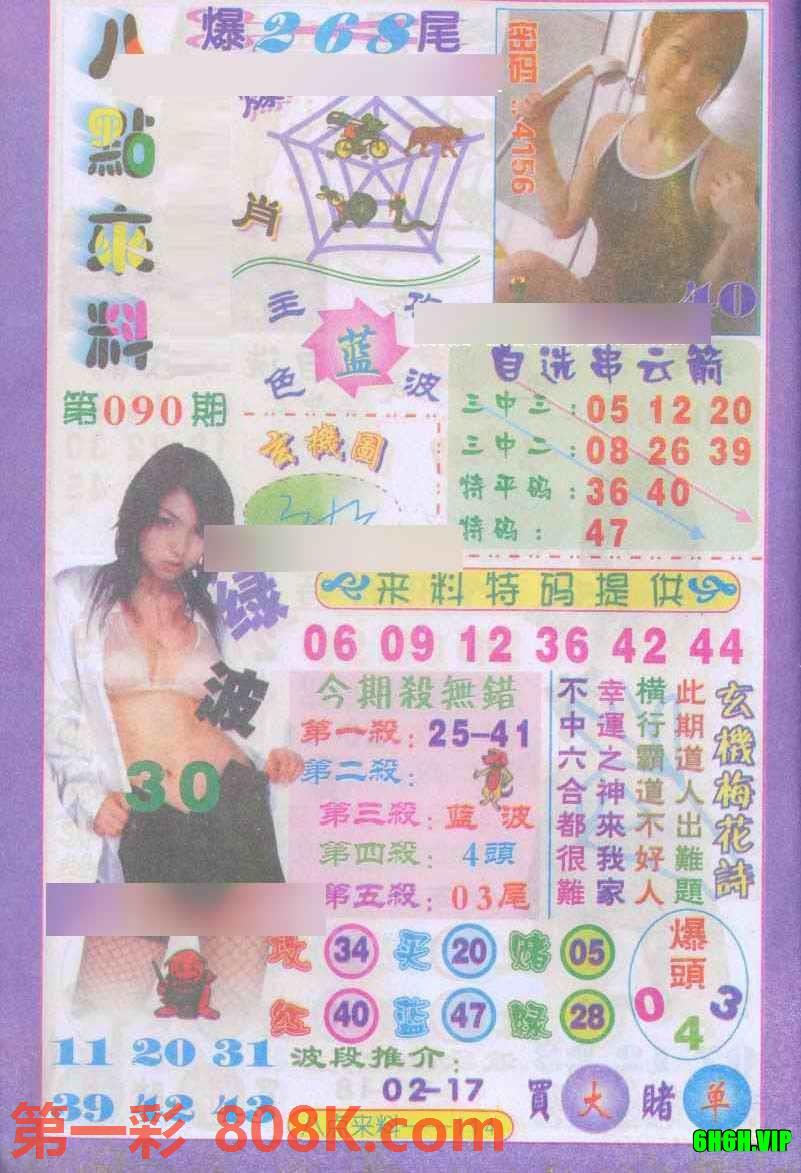 八點來料
爆268尾
肖
4156
40
主
色
蓝
波
第090期
自选串云箭
三中三：05 12 20
三中二：08 26 39
特平码：36 40
特码：47
玄機圖
绿波
30
来料特码提供
06 09 12 36 42 44
今期殺無錯
第一殺：25-41
第二殺：
第三殺：蓝波
第四殺：4頭
第五殺：03尾
玄機梅花詩
此期道人出難題
橫行霸道不好人
幸運之神來我家
不中六合都很難
攻 34 买 20 赌 05
红 40 蓝 47 绿 28
爆頭
0 4 3
11 20 31
39 42 43
波段推介：
02-17
買大賭单
来料
第一彩 808K.com
6H6H.VIP